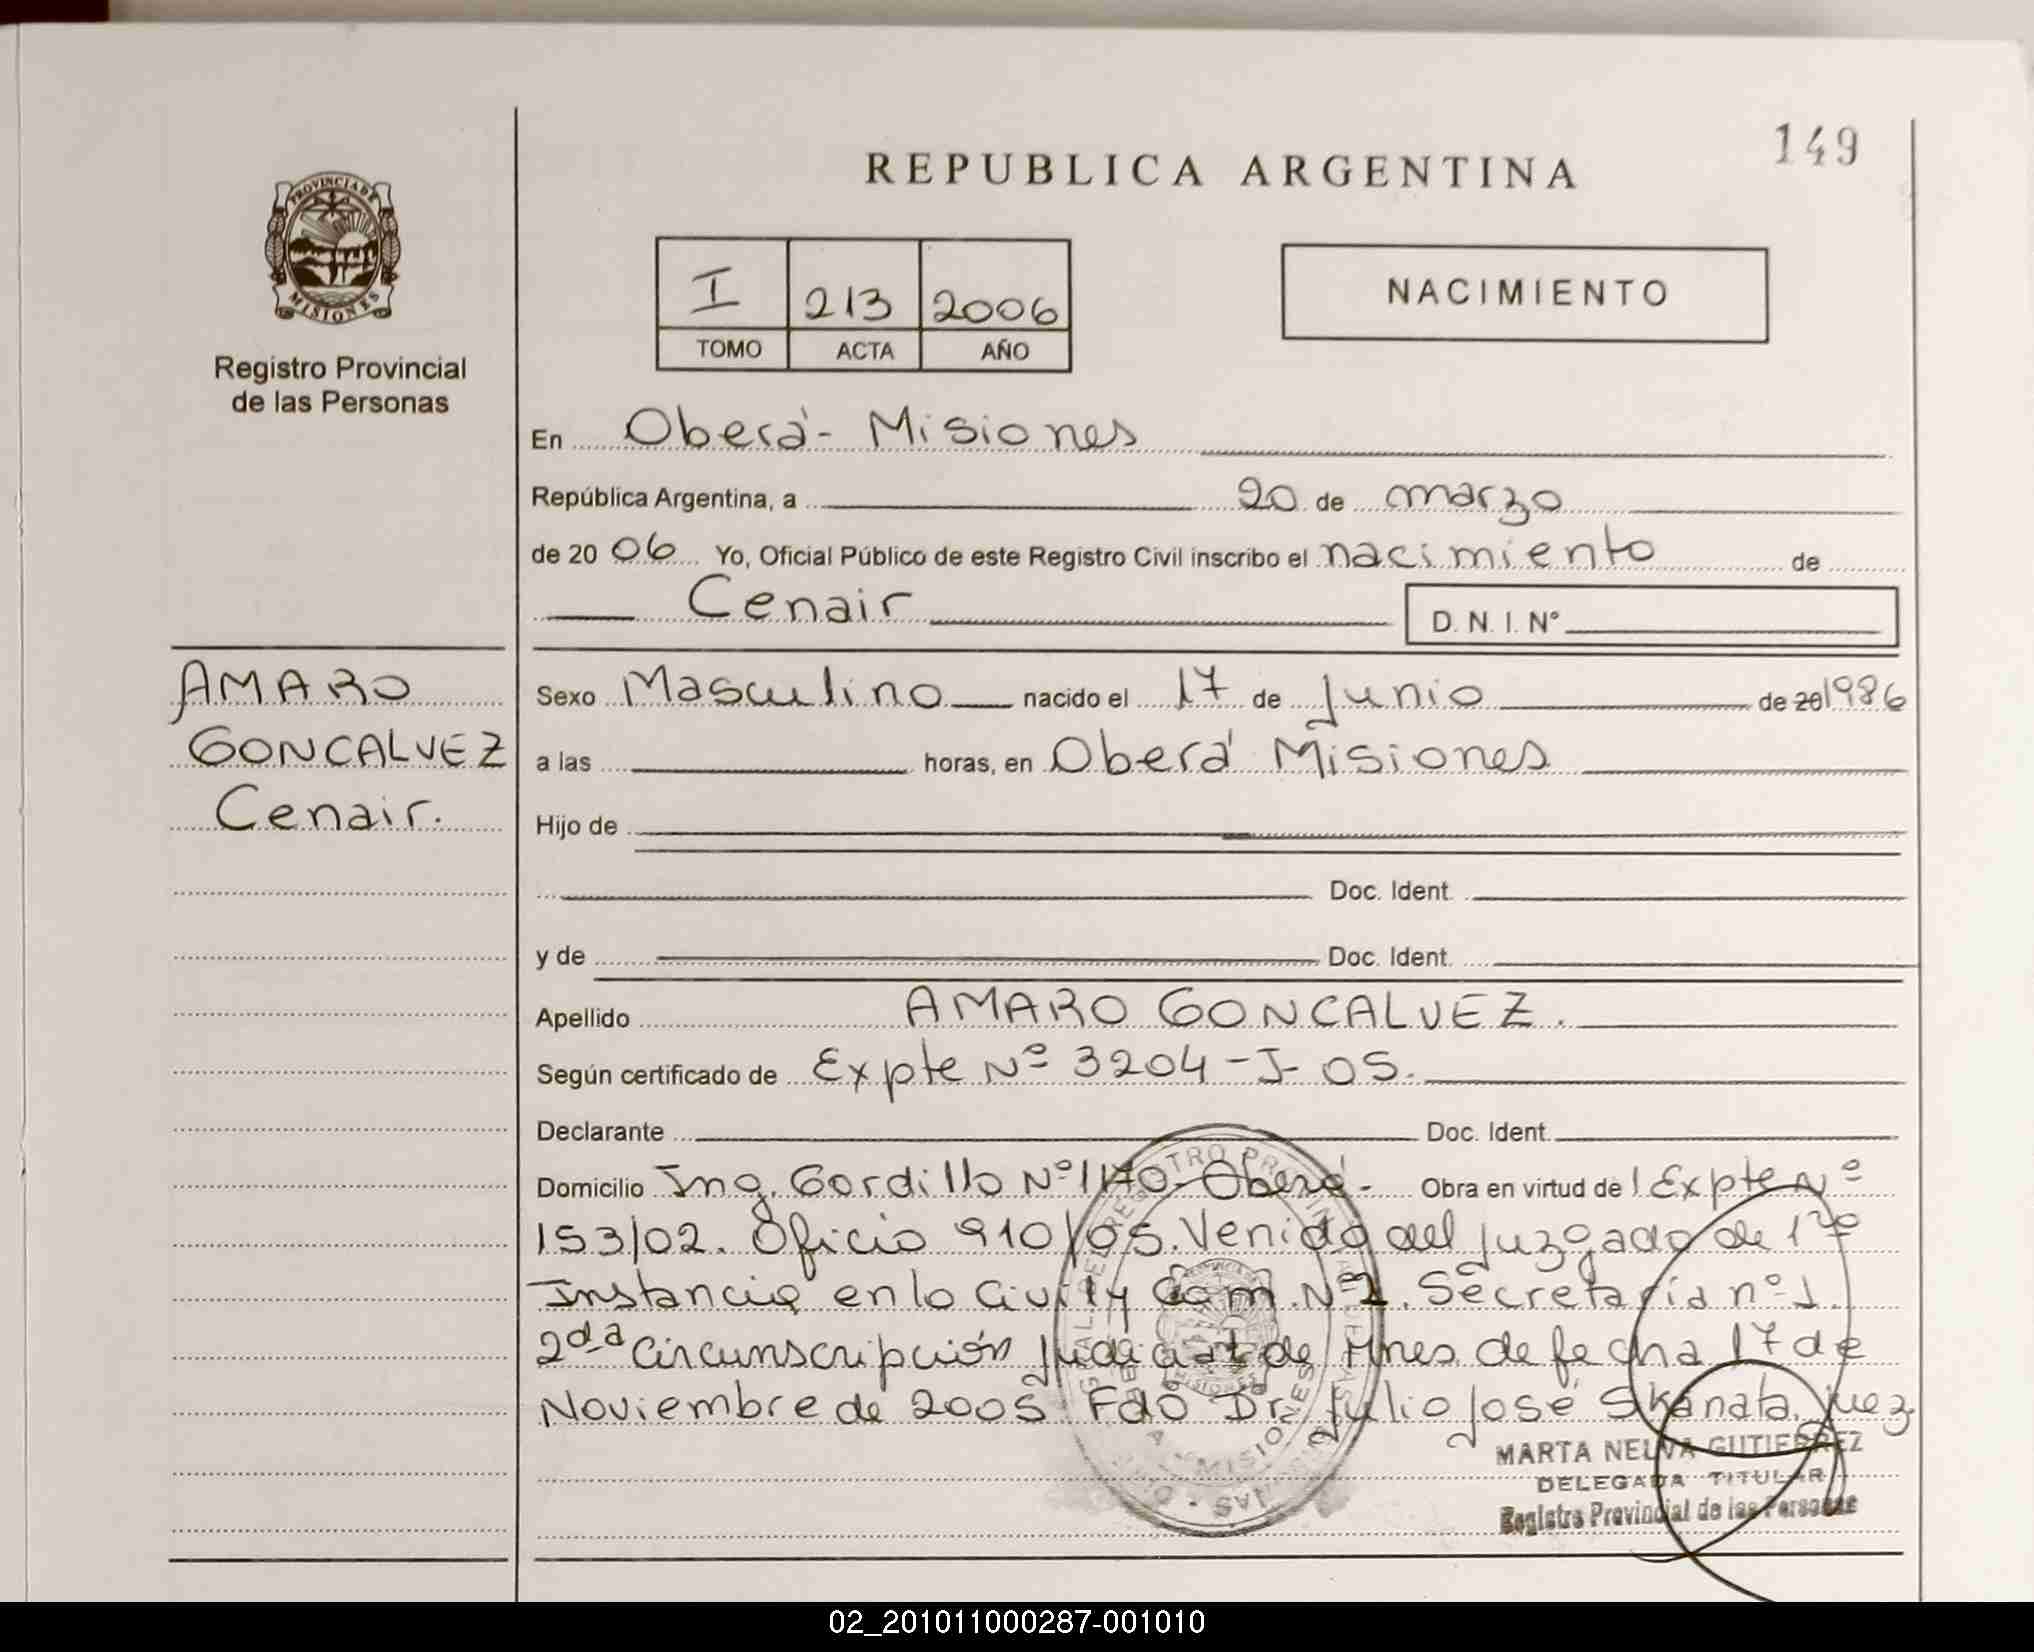 149
REPUBLICA ARGENTINA
PROVINCIA DE
MISIONES
Registro Provincial
de las Personas
I 213 2006
TOMO ACTA AÑO
NACIMIENTO
En Oberá - Misiones
República Argentina, a 20 de marzo
de 20 06 Yo, Oficial Público de este Registro Civil inscribo el nacimiento de
Cenair D. N. I. Nº
AMARO
GONCALVEZ
Cenair.
Sexo Masculino nacido el 17 de Junio de 20 1986
a las horas, en Oberá Misiones
Hijo de
Doc. Ident.
y de Doc. Ident.
Apellido AMARO GONCALVEZ.
Según certificado de Expte Nº 3204-J-05.
Declarante Doc. Ident.
Domicilio Ing. Gordillo Nº 1170. Oberá- Obra en virtud del Expte Nº
153/02. Oficio 910/05. Venido del Juzgado de 1ro
Instancia en lo Civil y Com. Nº 2. Secretaría nº 1.
2da Circunscripción Judicial de Mnes de fecha 17 de
Noviembre de 2005 Fdo Dr. Julio José Skanata, Juez
MARTA NELVA GUTIERREZ
DELEGADA TITULAR
Registro Provincial de las Personas
02_201011000287-001010